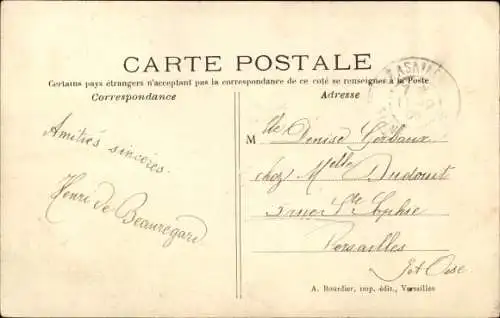 CARTE POSTALE
Certains pays étrangers n'acceptant pas la correspondance de ce coté se renseigner à la Poste
Correspondance
Adresse
Amitiés sincères.
Henri de Beauregard
Mlle Denise Gerbaux
chez Melle Dudouit
3 rue Ste Sophie
Versailles
S et Oise
A. Bourdier, imp. édit., Versailles